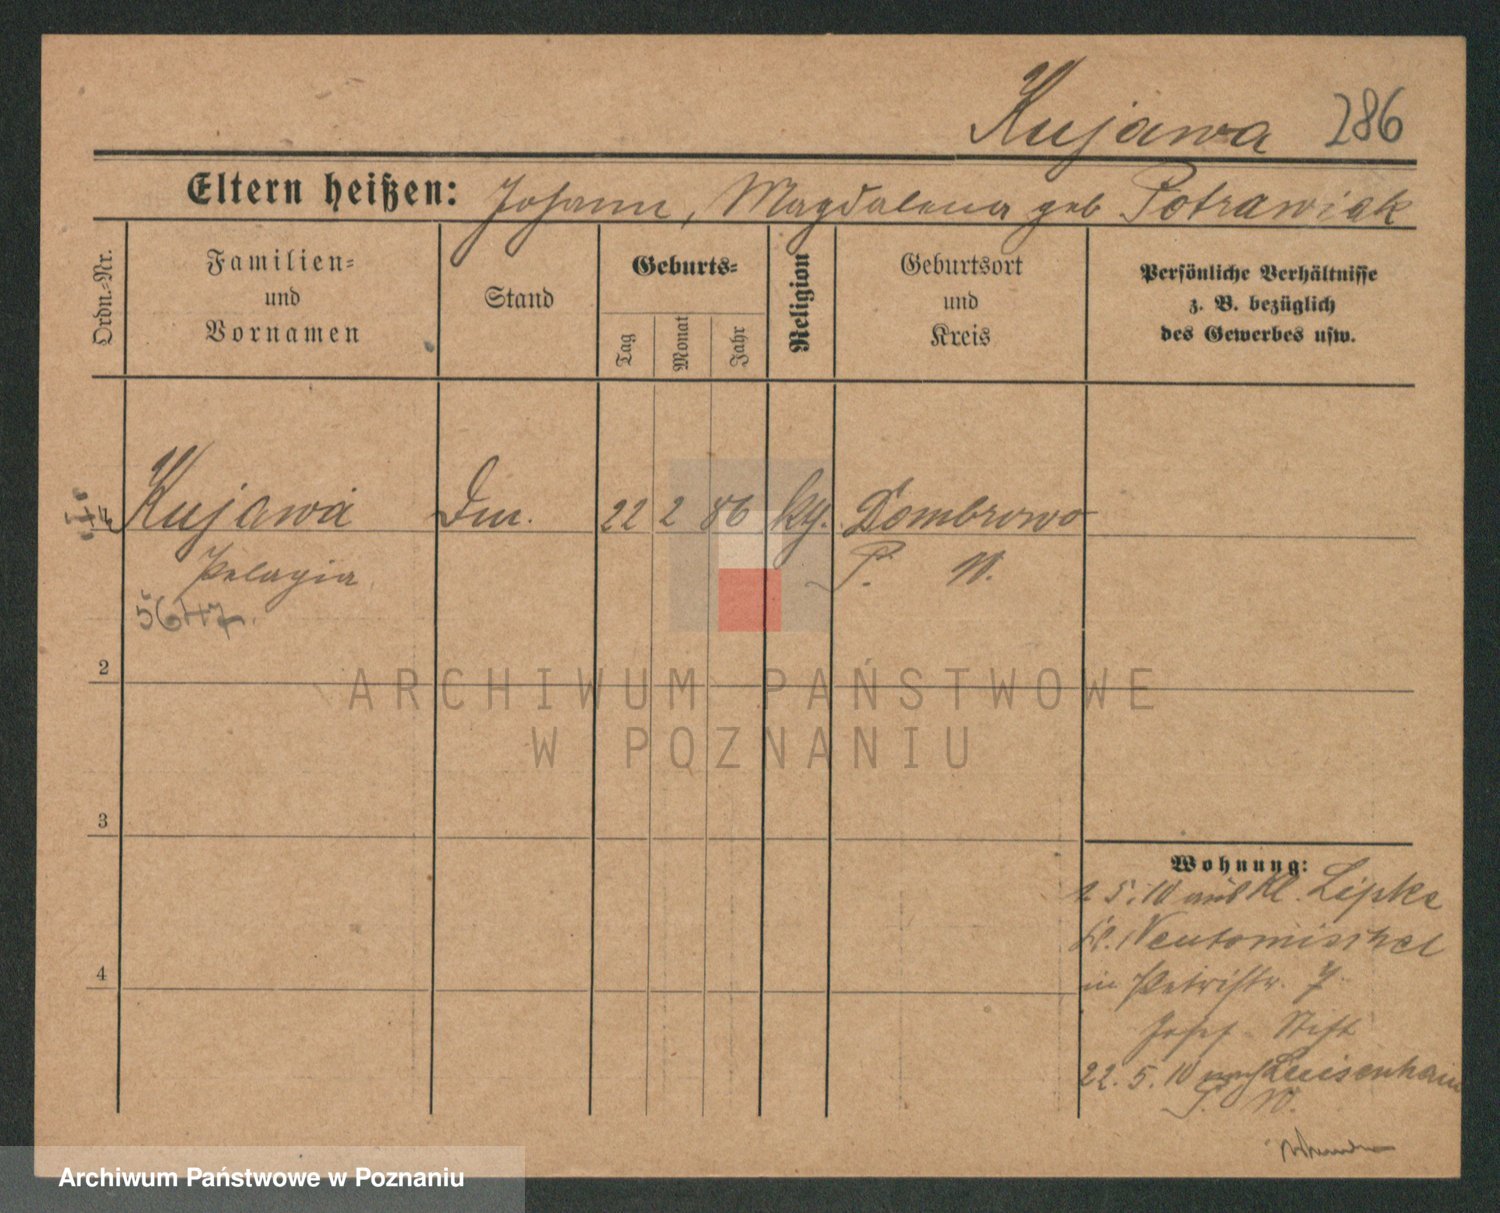 Kujawa 286
Eltern heißen: Johann, Magdalena geb Potrawiak
Ordn.-Nr.
Familien-
und
Vornamen
Stand
Geburts-
Tag
Monat
Jahr
Religion
Geburtsort
und
Kreis
Persönliche Verhältnisse
z. B. bezüglich
des Gewerbes usw.
Kujawa 22 2 86 Dombrowo
Pelagia P. W.
5647.
2
ARCHIWUM PAŃSTWOWE
W POZNANIU
3
Wohnung:
5.10 aus Kl. Lipka
Kr. Neutomischel
in Petristr. 7
Josef Stift
4
22.5.10 nach Luisenhain
P. W.
Archiwum Państwowe w Poznaniu